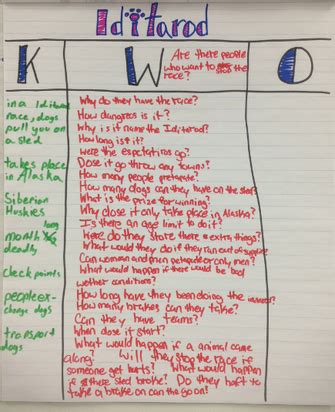 Iditarod
K
W
Are there people
who want to stop the
race?
in a Iditarod
race, dogs
pull you on
a sled
takes place
in Alaska
Siberian
Huskies
month long
deadly
check points
people ex-
change dogs
transport
dogs
Why do they have the race?
How dangres is it?
Why is it name the Iditarod?
How long is it?
Were the expectations go?
Dose it go throw any towns?
How many people
How many dogs can they have on the sled?
What is the prize for winning?
Why dose it only take place in Alaska?
Is there an age limit to do it?
Were do they store there extra things?
What would they do if they ran out of supplies
Can women and men or only men?
What would happen if there would be bad
wether conditions?
How long have they been doing the
How many brakes can they take?
Can they have teams?
When dose it start?
What would happen if a animal came
along? Will they stop the race if
someone get hurts? What would happen
if these sled broke? Do they haft to
take a brake or can the go on?